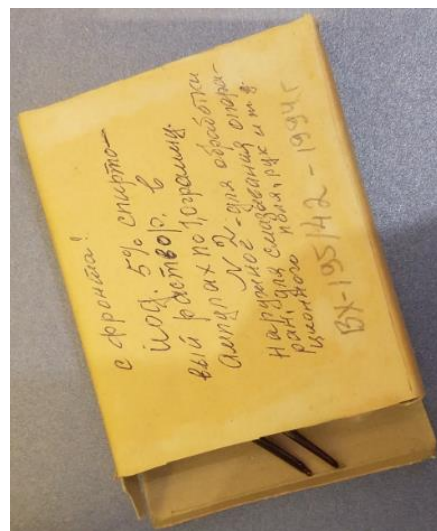 с фронта!
йод. 5% спирто-
вый раствор, в
ампулах по 1,0 грамму.
N 2
Наружное - для обработки
ран, для смазывания опера-
ционного поля, рук и т.д.
ВХ-195/42-1994г